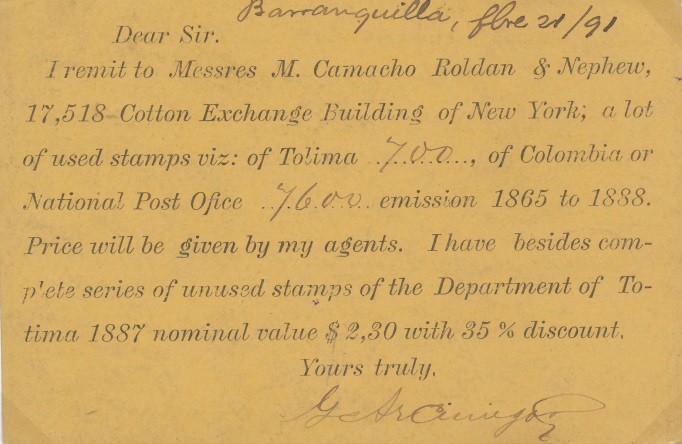 Barranquilla, fbre 21/91
Dear Sir.
I remit to Messres M. Camacho Roldan & Nephew,
17,518 Cotton Exchange Building of New York; a lot
of used stamps viz: of Tolima ..700..., of Colombia or
National Post Ofice ..7600.. emission 1865 to 1888.
Price will be given by my agents. I have besides com-
p'ete series of unused stamps of the Department of To-
tima 1887 nominal value $ 2,30 with 35 % discount.
Yours truly.